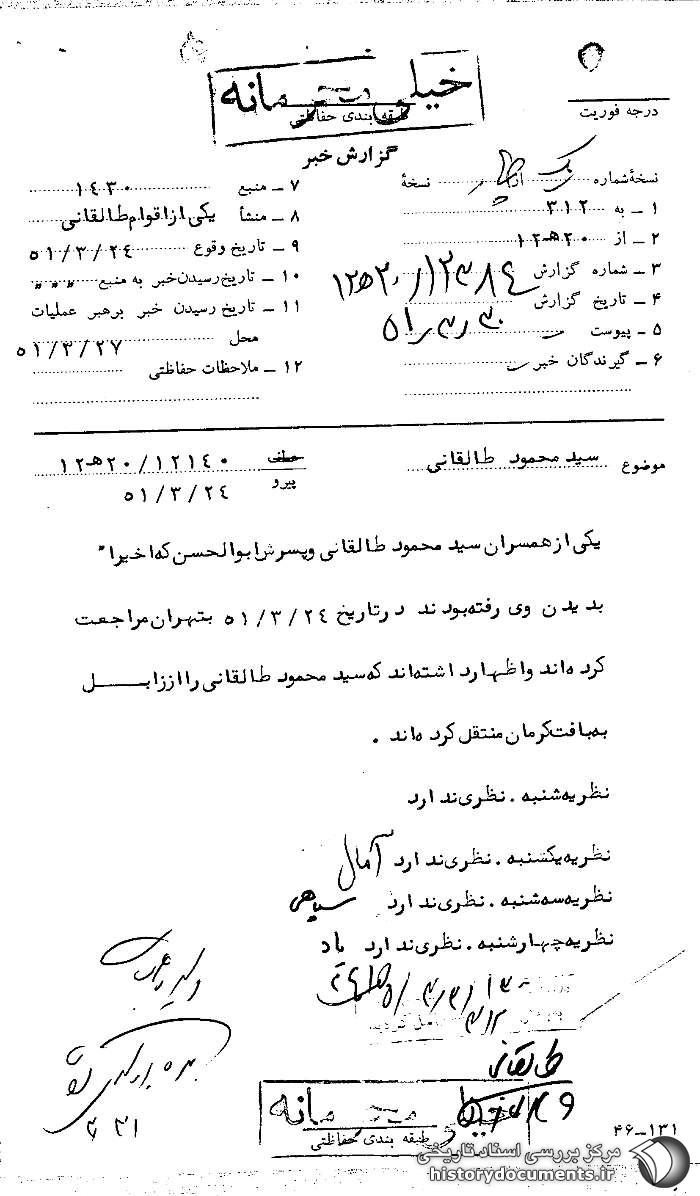 خیلی محرمانه
طبقه بندی حفاظتی
درجه فوریت
گزارش خبر
نسخهٔ شماره یک از چهار نسخهٔ
۱ ـ به ۳۱۲
۲ ـ از ۲۰هـ۱۲
۳ ـ شماره گزارش ۱۲۳۸۴/۲۰هـ۱۲
۴ ـ تاریخ گزارش ۵۱/۳/۳۰
۵ ـ پیوست
۶ ـ گیرندگان خبر
۷ ـ منبع ۱۴۳۰
۸ ـ منشأ یکی از اقوام طالقانی
۹ ـ تاریخ وقوع ۵۱/۳/۲۴
۱۰ ـ تاریخ رسیدن خبر به منبع ۰۰۰
۱۱ ـ تاریخ رسیدن خبر برهبر عملیات
محل ۵۱/۳/۲۷
۱۲ ـ ملاحظات حفاظتی
موضوع سید محمود طالقانی
عطف ۱۲۱۴۰/۲۰هـ۱۲
پیرو ۵۱/۳/۲۴
یکی از همسران سید محمود طالقانی و پسرش ابوالحسن که اخیراً
بدیدن وی رفته بودند در تاریخ ۵۱/۳/۲۴ بتهران مراجعت
کرده اند و اظهار داشته اند که سید محمود طالقانی را از زابـــل
به بافت کرمان منتقل کرده اند .
نظریه شنبه . نظری ندارد
نظریه یکشنبه . نظری ندارد آمال
نظریه سه شنبه . نظری ندارد سپاهی
نظریه چهارشنبه . نظری ندارد یاد
۳۱۲
طالقانی
خیلی محرمانه
طبقه بندی حفاظتی
۱۳۱ـ۴۶
مرکز بررسی اسناد تاریخی
historydocuments.ir